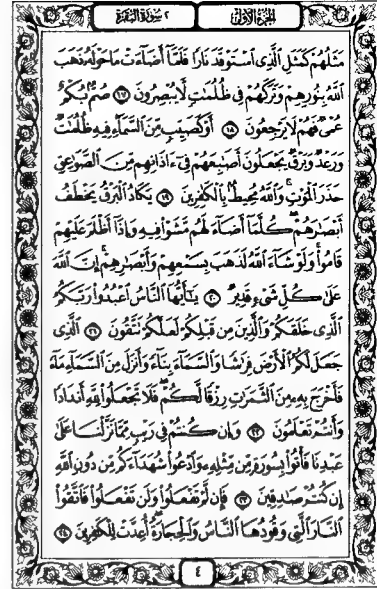 الجزء الأول
٢ سورة البقرة
مَثَلُهُمْ كَمَثَلِ الَّذِى اسْتَوْقَدَ نَارًا فَلَمَّآ أَضَآءَتْ مَاحَوْلَهُ ذَهَبَ
اللَّهُ بِنُورِهِمْ وَتَرَكَهُمْ فِى ظُلُمَٰتٍ لَّا يُبْصِرُونَ ١٧ صُمٌّ بُكْمٌ
عُمْىٌ فَهُمْ لَا يَرْجِعُونَ ١٨ أَوْ كَصَيِّبٍ مِّنَ السَّمَآءِ فِيهِ ظُلُمَٰتٌ
وَرَعْدٌ وَبَرْقٌ يَجْعَلُونَ أَصَٰبِعَهُمْ فِىٓ ءَاذَانِهِم مِّنَ الصَّوَٰعِقِ
حَذَرَ الْمَوْتِ وَاللَّهُ مُحِيطٌۢ بِالْكَٰفِرِينَ ١٩ يَكَادُ الْبَرْقُ يَخْطَفُ
أَبْصَٰرَهُمْ كُلَّمَآ أَضَآءَ لَهُم مَّشَوْا فِيهِ وَإِذَآ أَظْلَمَ عَلَيْهِمْ
قَامُوا وَلَوْ شَآءَ اللَّهُ لَذَهَبَ بِسَمْعِهِمْ وَأَبْصَٰرِهِمْ إِنَّ اللَّهَ
عَلَىٰ كُلِّ شَىْءٍ قَدِيرٌ ٢٠ يَٰٓأَيُّهَا النَّاسُ اعْبُدُوا رَبَّكُمُ
الَّذِى خَلَقَكُمْ وَالَّذِينَ مِن قَبْلِكُمْ لَعَلَّكُمْ تَتَّقُونَ ٢١ الَّذِى
جَعَلَ لَكُمُ الْأَرْضَ فِرَٰشًا وَالسَّمَآءَ بِنَآءً وَأَنزَلَ مِنَ السَّمَآءِ مَآءً
فَأَخْرَجَ بِهِۦ مِنَ الثَّمَرَٰتِ رِزْقًا لَّكُمْ فَلَا تَجْعَلُوا لِلَّهِ أَندَادًا
وَأَنتُمْ تَعْلَمُونَ ٢٢ وَإِن كُنتُمْ فِى رَيْبٍ مِّمَّا نَزَّلْنَا عَلَىٰ
عَبْدِنَا فَأْتُوا بِسُورَةٍ مِّن مِّثْلِهِۦ وَادْعُوا شُهَدَآءَكُم مِّن دُونِ اللَّهِ
إِن كُنتُمْ صَٰدِقِينَ ٢٣ فَإِن لَّمْ تَفْعَلُوا وَلَن تَفْعَلُوا فَاتَّقُوا
النَّارَ الَّتِى وَقُودُهَا النَّاسُ وَالْحِجَارَةُ أُعِدَّتْ لِلْكَٰفِرِينَ ٢٤
٤